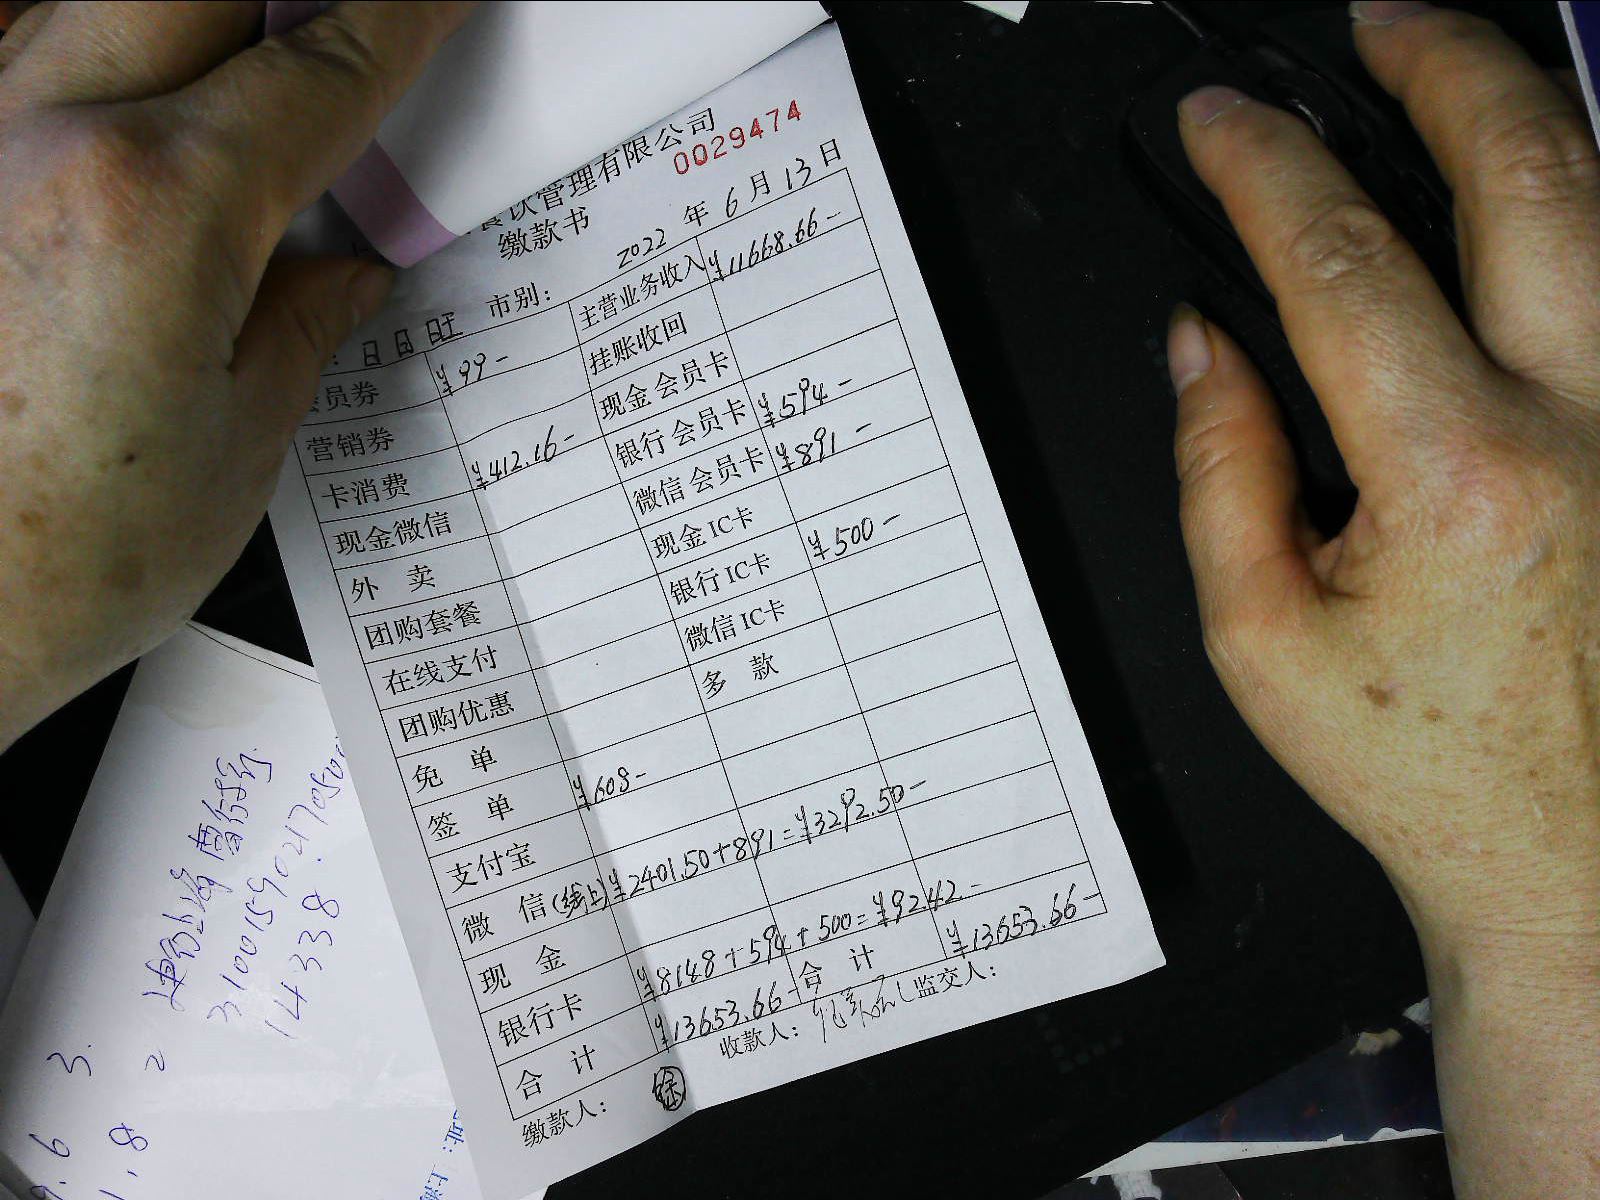 餐饮管理有限公司
0029474
缴款书
2022 年 6 月 13 日
: 日日旺 市别:
会员券 ¥99- 主营业务收入 ¥11668.66-
营销券 挂账收回
卡消费 ¥412.16- 现金会员卡
现金微信 银行会员卡 ¥594-
外 卖 微信会员卡 ¥891-
团购套餐 现金IC卡
在线支付 银行IC卡 ¥500-
团购优惠 微信IC卡
免 单 多 款
签 单 ¥608-
支付宝
微 信(线上) ¥2401.50+891=¥3292.50-
现 金
银行卡 ¥8148+594+500=¥9242.-
合 计 ¥13653.66- 合 计 ¥13653.66-
缴款人: 徐 收款人: 监交人:
14338
3.
2
址: 上海